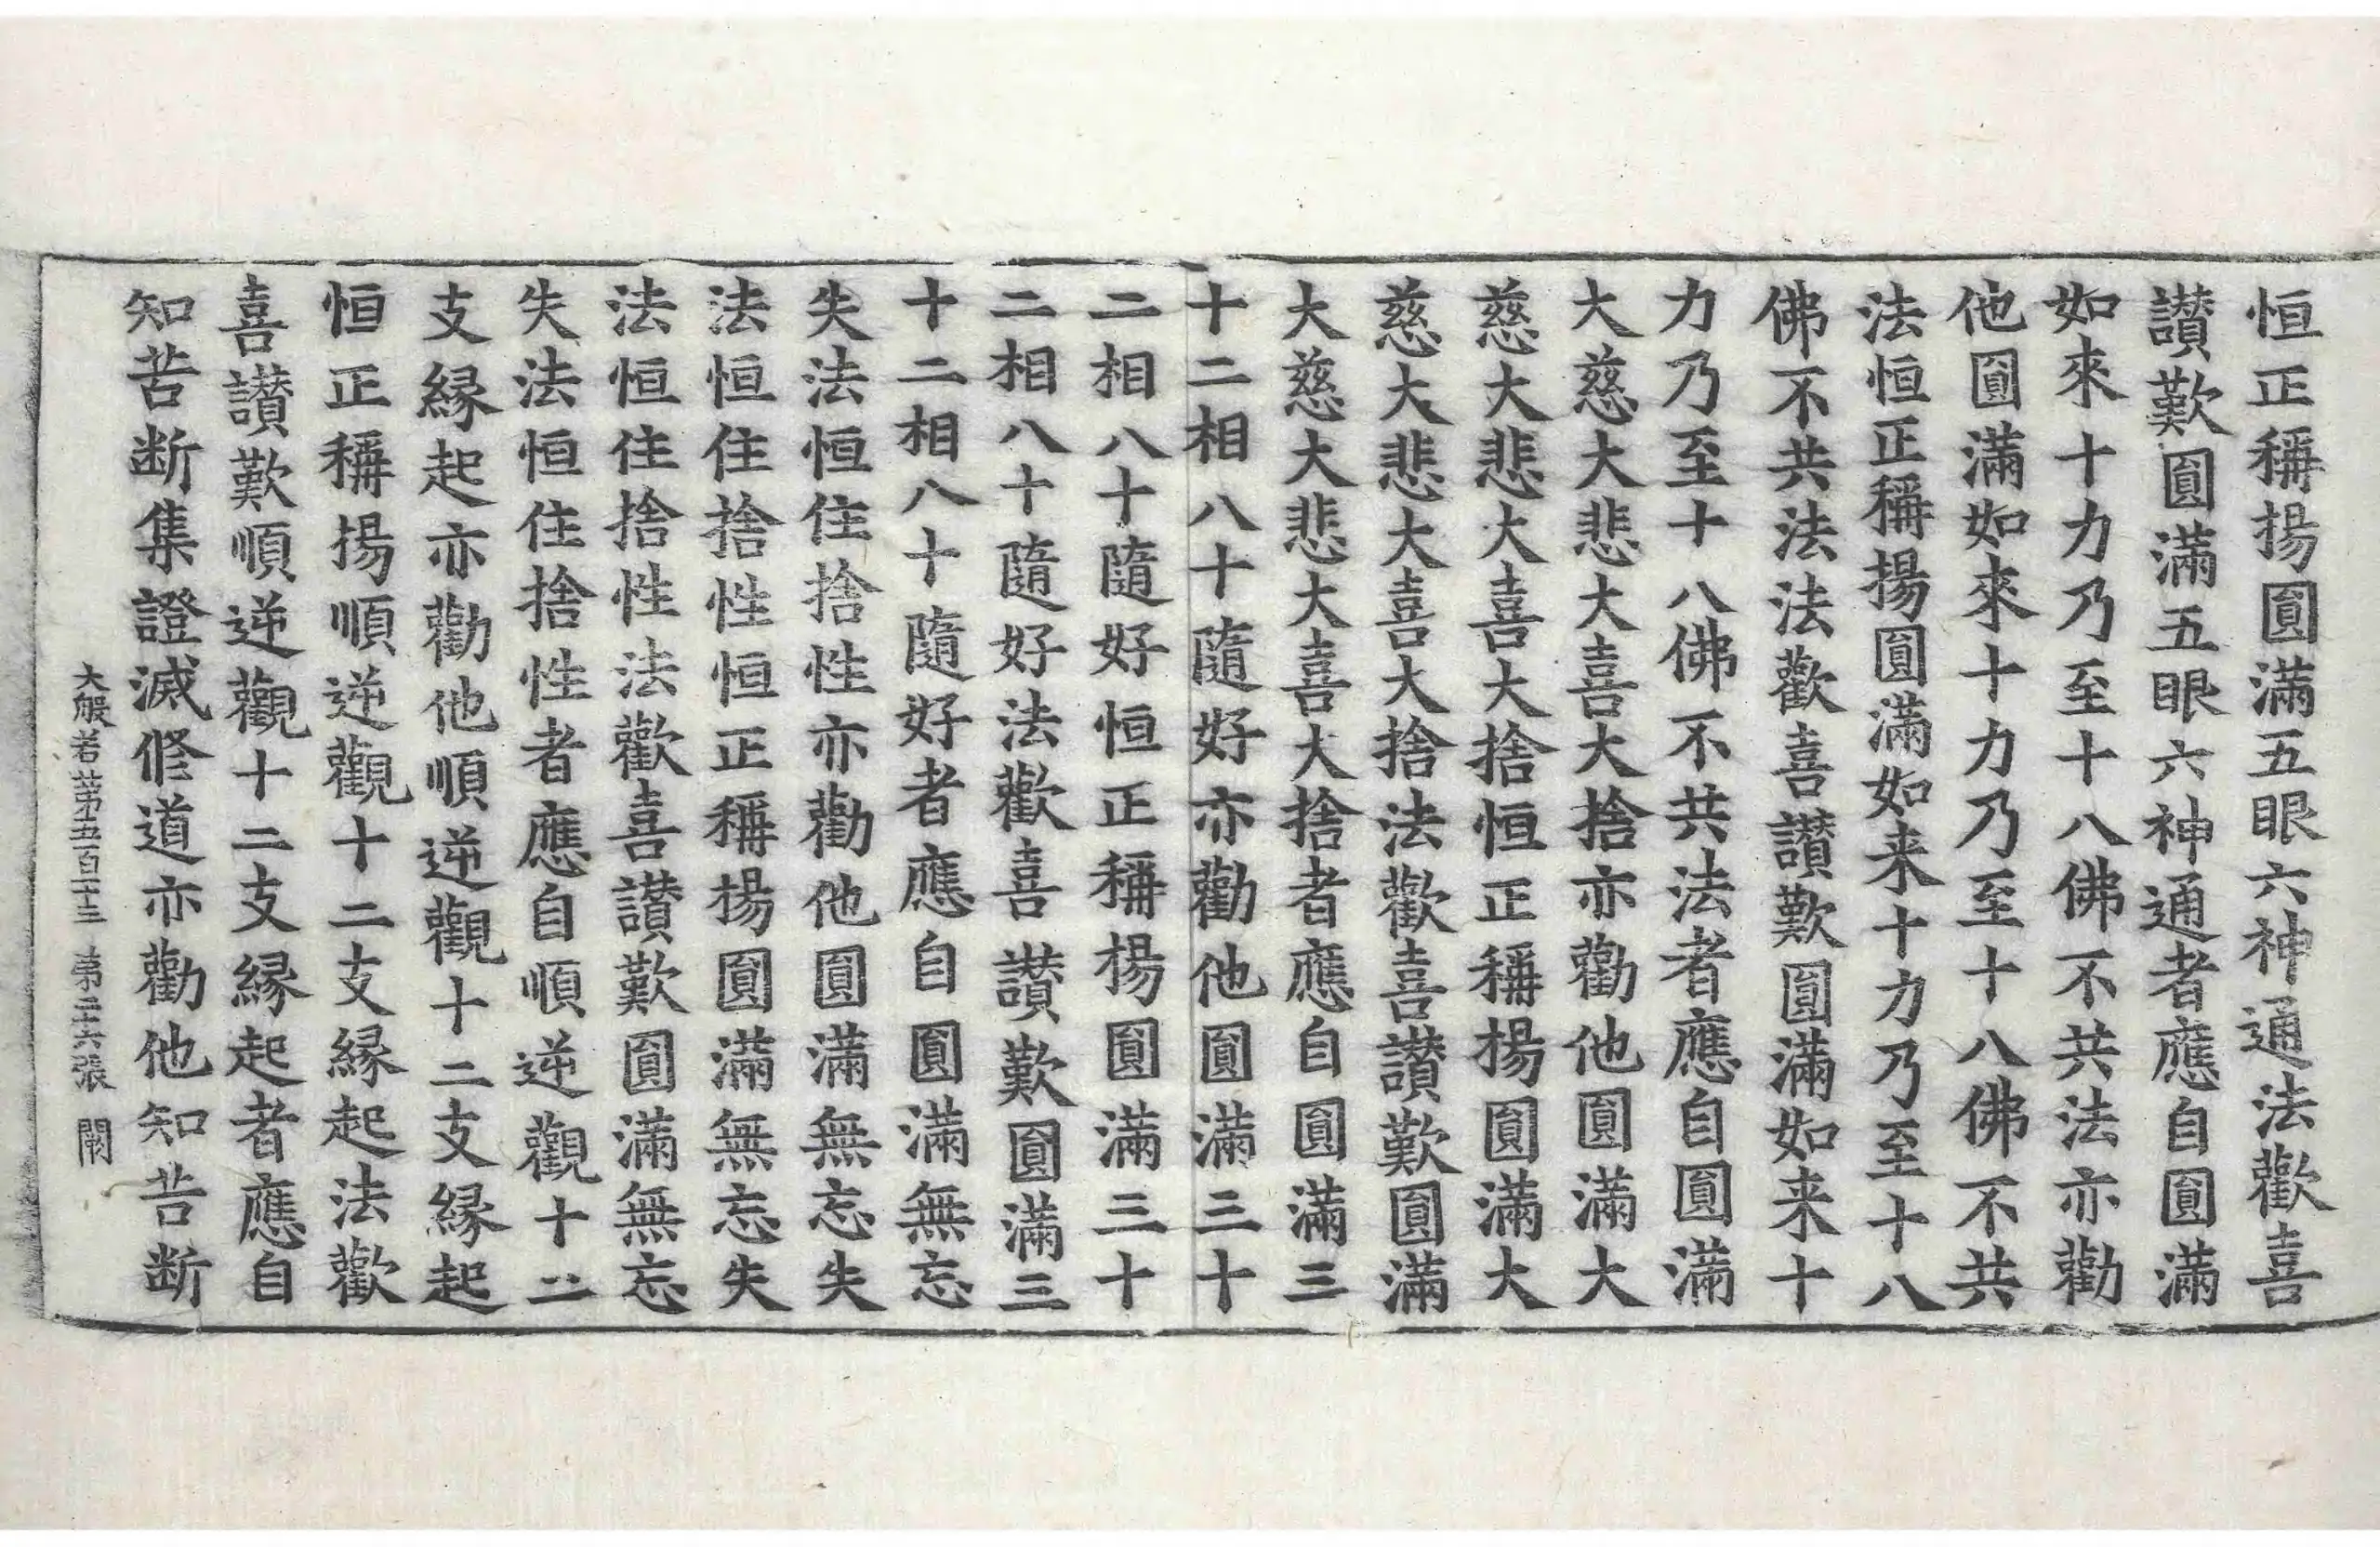 恒正稱揚圓滿五眼六神通法歡喜
讃歎圓滿五眼六神通者應自圓滿
如來十力乃至十八佛不共法亦勸
他圓滿如來十力乃至十八佛不共
法恒正稱揚圓滿如来十力乃至十八
佛不共法法歡喜讃歎圓滿如来十
力乃至十八佛不共法者應自圓滿
大慈大悲大喜大捨亦勸他圓滿大
慈大悲大喜大捨恒正稱揚圓滿大
慈大悲大喜大捨法歡喜讃歎圓滿
大慈大悲大喜大捨者應自圓滿三
十二相八十隨好亦勸他圓滿三十
二相八十隨好恒正稱揚圓滿三十
二相八十隨好法歡喜讃歎圓滿三
十二相八十隨好者應自圓滿無忘
失法恒住捨性亦勸他圓滿無忘失
法恒住捨性恒正稱揚圓滿無忘失
法恒住捨性法歡喜讃歎圓滿無忘
失法恒住捨性者應自順逆觀十二
支縁起亦勸他順逆觀十二支縁起
恒正稱揚順逆觀十二支縁起法歡
喜讃歎順逆觀十二支縁起者應自
知苦断集證滅修道亦勸他知苦断
大般若第五百十三 第二十六張 闕